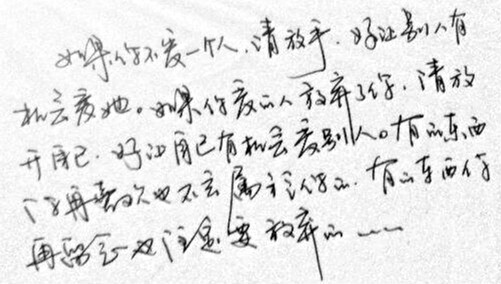 如果你不爱一个人，请放手．好让别人有
机会爱她。如果你爱的人放弃了你，请放
开自己．好让自己有机会爱别人。有的东西
你再喜欢也不会属于你的．有的东西你
再留恋也注定要放弃的……